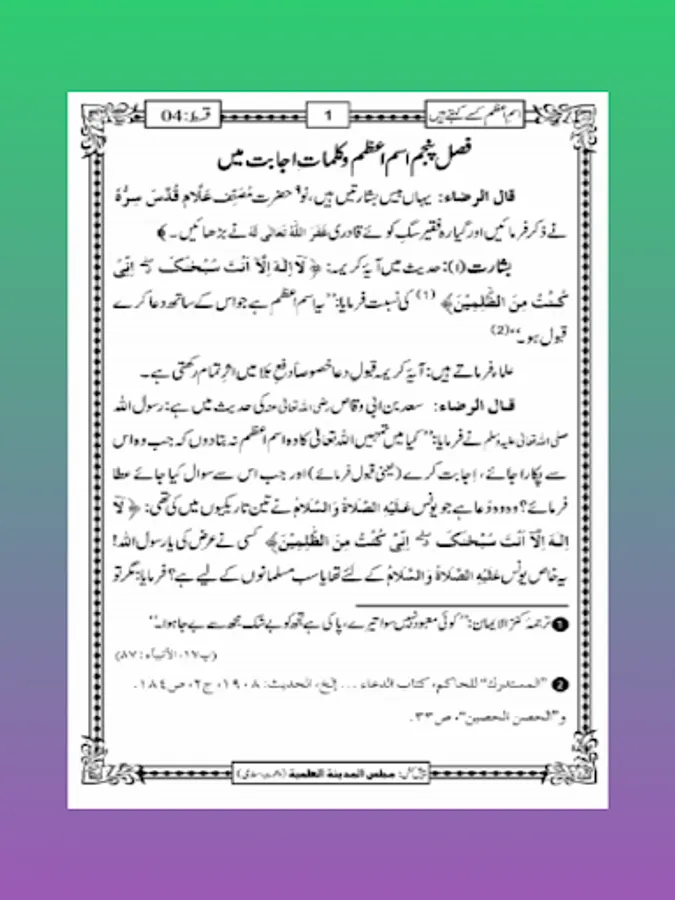 اسمِ اعظم کسے کہتے ہیں
1
قسط:04
فصل پنجم اسمِ اعظم وکلماتِ اجابت میں
قال الرضاء: یہاں بیس بشارتیں ہیں، نو۹ حضرت مُصنِّف عَلَّام قُدِّسَ سِرُّہٗ
نے ذکر فرمائیں اور گیارہ فقیر سگِ کوئے قادری غَفَرَ اللہُ تَعَالٰی لَہٗ نے بڑھائیں۔﴾
بشارت(۱): حدیث میں آیۂ کریمہ: ﴿ لَاۤ اِلٰهَ اِلَّاۤ اَنْتَ سُبْحٰنَكَ ۖۗ اِنِّیْ
كُنْتُ مِنَ الظّٰلِمِیْنَ﴾ (1) کی نسبت فرمایا: ’’یہ اسمِ اعظم ہے جو اس کے ساتھ دعا کرے
قبول ہو۔‘‘(2)
علماء فرماتے ہیں: آیۂ کریمہ قبولِ دعا خصوصاً دفعِ بلا میں اثرِ تمام رکھتی ہے۔
قال الرضاء: سعد بن ابی وقاص رضی اللہ تعالٰی عنہ کی حدیث میں ہے: رسول اللہ
صلی اللہ تعالٰی علیہ وسلم نے فرمایا: ’’کیا میں تمہیں اللہ تعالٰی کا وہ اسمِ اعظم نہ بتا دوں کہ جب وہ اس
سے پکارا جائے، اِجابت کرے (یعنی قبول فرمائے) اور جب اس سے سوال کیا جائے عطا
فرمائے؟ وہ وہ دُعا ہے جو یونس عَلَیْہِ الصَّلَاۃُ وَالسَّلَام نے تین تاریکیوں میں کی تھی: ﴿ لَاۤ
اِلٰهَ اِلَّاۤ اَنْتَ سُبْحٰنَكَ ۖۗ اِنِّیْ كُنْتُ مِنَ الظّٰلِمِیْنَ﴾ کسی نے عرض کی یا رسول اللہ!
یہ خاص یونس عَلَیْہِ الصَّلَاۃُ وَالسَّلَام کے لئے تھا یا سب مسلمانوں کے لیے ہے؟ فرمایا: مگر تو
1 ترجمۂ کنز الایمان: ’’کوئی معبود نہیں سوا تیرے، پاکی ہے تجھ کو بے شک مجھ سے بے جا ہوا۔‘‘
(پ۱۷، الأنبیآء: ۸۷)
2 ’’المستدرك‘‘ للحاکم، کتاب الدعاء ... إلخ، الحدیث: ۱۹۰۸، ج۲، ص۱۸۴.
و’’الحصن الحصین‘‘، ص۳۳.
پیش کش: مجلس المدینة العلمیة (دعوتِ اسلامی)